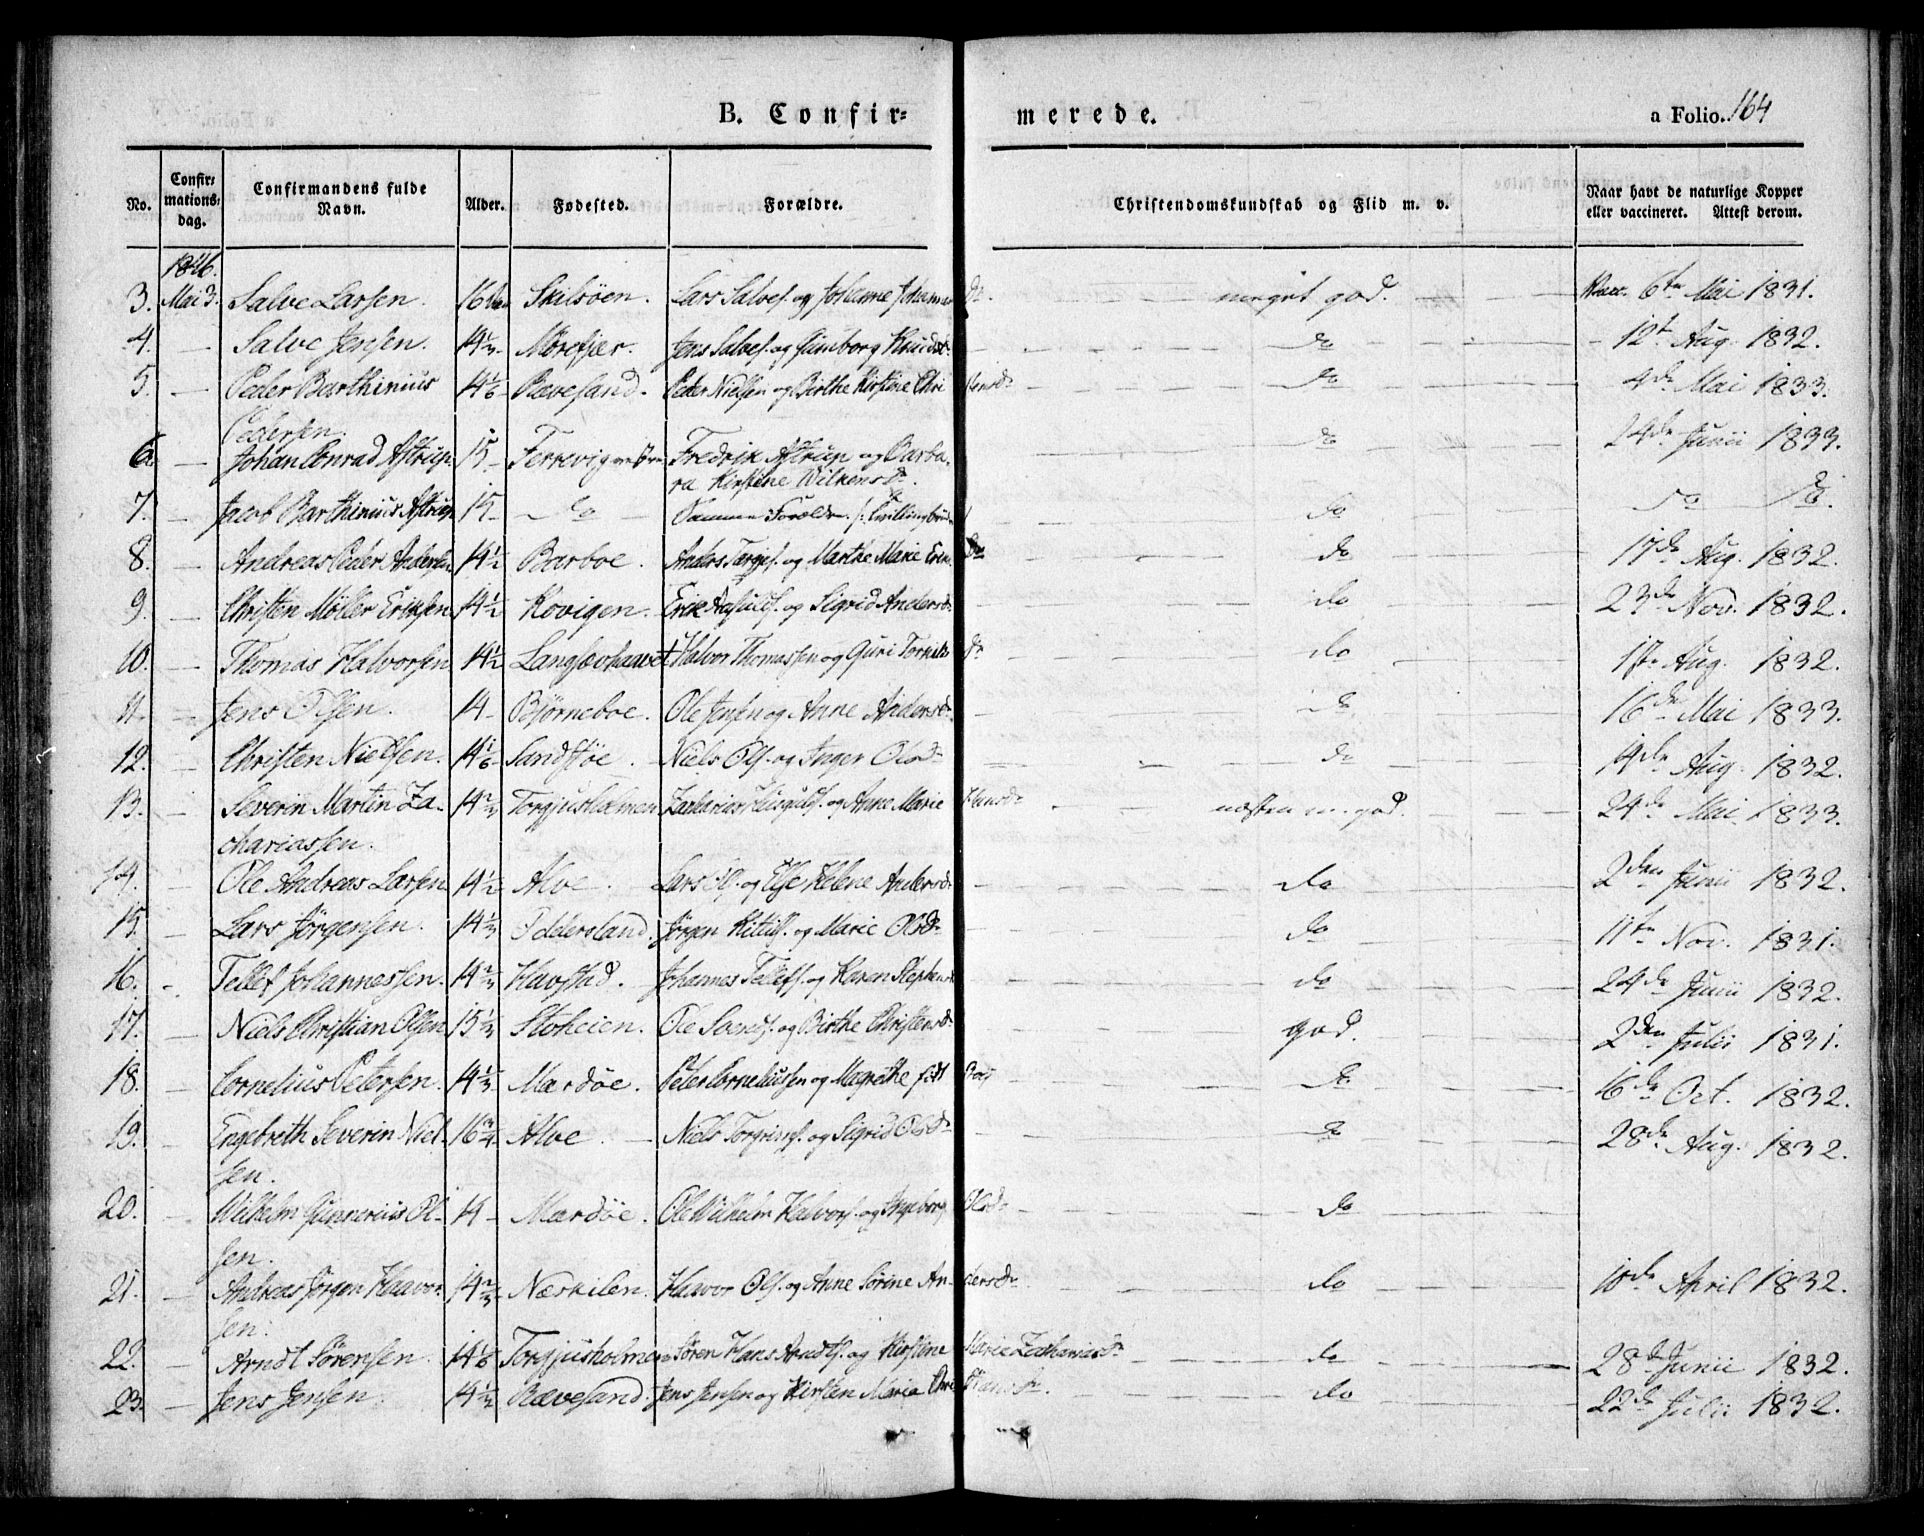 B. Confir=merede. a Folio. 164
No. Confir=mations=dag. Confirmandens fulde Navn. Alder. Fødested. Forældre. Christendomskundskab og Flid m. v. Naar havt de naturlige Kopper eller vaccineret. Attest derom.
1846.
3. Mai 3. Salve Larsen. 16 Skilsöen. Lars Salves. og Johanne meget god. 6te Mai 1831.
4. — Salve Jensen. 14 1/3 Mörefjær. Jens Salves. og Knudsd. do 12te Aug. 1832.
5. — Peder Barthinius 14 1/6 Rævesand. Peder Nielsen og Birthe Kirstine Christensd. do 4de Mai 1833.
Pedersen.
6. — Johan Conrad Astrup 15 Terrevig Fredrik Astrup og Barba- do 24de Junii 1833.
ra Kirstine Wilkensdr.
7. — Jacob Barthinius Astrup 15 do Samme Forældre do do do.
8. — Andreas Peder Andersen 14 1/2 Barboe. Anders Targjs. og Marthe Marie do 17de Aug. 1832.
9. — Christen Möller Eriksen 14 1/2 Kovigen. Erik og Sigrid Andersd. do 23de Nov. 1832.
10. — Thomas Halvorsen 14 1/2 Langsævhaavet Halvor Thomassen og Guri do Aug. 1832.
11. — Jens Olsen. 14 Björneboe. Ole Jensen og Anne Andersd. do 16de Mai 1833.
12. — Christen Nielsen. 14 1/6 Sandstöe. Niels Ols. og Inger Olsd. do 14de Aug. 1832.
13. — Severin Martin Za- 14 2/3 Torgjusholmen Zacharias og Anne Marie Hansd. næsten m. god. 24de Mai 1833.
chariassen.
14. — Ole Andreas Larsen 14 1/2 Alve. Lars Ol. og Else Helene Andersd. do 2den Junii 1832.
15. — Lars Jörgensen. 14 1/3 Jörgen Kittils. og Marie Olsd. do 11te Nov. 1831.
16. — Tellef Johannessen. 14 2/3 Havstad. Johannes Tellefs. og Karen do 24de Junii 1832.
17. — Niels Christian Olsen 15 1/3 Stoheien. Ole og Birthe Christensd. god. 2den Julii 1831.
18. — Cornelius Petersen. 14 1/3 Mærdöe. Peter Corneliussen og Magrethe født do 16de Oct. 1832.
19. — Engebreth Severin Niel- 16 3/4 Alve. Niels og Sigrid Olsd. do 28de Aug. 1832.
sen.
20. — Wilhelm Gunnerius Ol- 14 Mærdöe. Ole Wilhelm Halvors. og Ingeborg Olsd. do
sen.
21. — Andreas Jörgen Haavor- 14 2/3 Næskilen. Haavor Ols. og Anne Sörine Andersd. do 10de April 1832.
sen.
22. — Arndt Sörensen. 14 1/6 Torgjusholmen Sören Hans Arndts. og Kirstine Marie Zachariasd. do 28de Junii 1832.
23. — Jens Jensen. 14 1/2 Rævesand. Jens Jensen og Kirsten Marie Christiansd. do 22de Julii 1832.